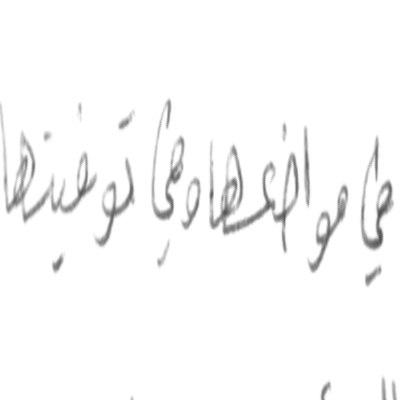 في مواضعها وفي توقيتها